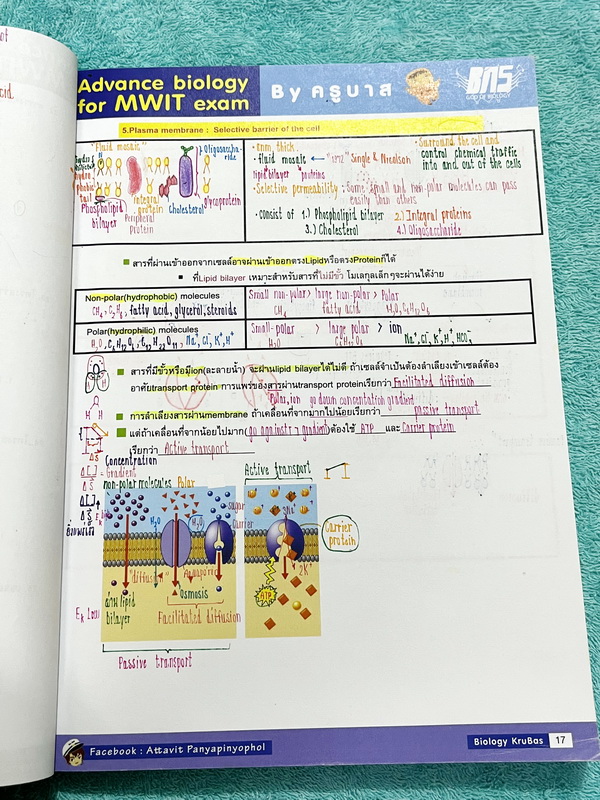 Advance biology
for MWIT exam
By ครูบาส
BNS
GOD OF BIOLOGY
5.Plasma membrane : Selective barrier of the cell
"Fluid mosaic"
Oligosaccha-
ride
glycoprotein
Integral
protein
Cholesterol
Phospholipid
bilayer
Peripheral
protein
thick.
fluid mosaic
"1972" Singer & Nicolson
lipid bilayer proteins
Surround the cell and
control chemical traffic
into and out of the cells
Selective permeability : Some small and non-polar molecules can pass
easily than others
consist of 1.) Phospholipid bilayer 2.) Integral proteins
3.) Cholesterol 4.) Oligosaccharide
สารที่ผ่านเข้าออกจากเซลล์อาจผ่านเข้าออกตรงLipidหรือตรงProteinก็ได้
ที่Lipid bilayer เหมาะสำหรับสารที่ไม่มีขั้ว โมเลกุลเล็กๆจะผ่านได้ง่าย
Non-polar(hydrophobic) molecules
fatty acid, glycerol, steroids
Small non-polar > large non-polar > Polar
CH₄ fatty acid H₂O, C₆H₁₂O₆
Polar(hydrophilic) molecules
H₂O, C₆H₁₂O₆, C₁₂H₂₂O₁₁, Na⁺, Cl⁻, K⁺, H⁺
Small-polar > large polar > ion
H₂O C₆H₁₂O₆ Na⁺, Cl⁻, K⁺, H⁺, HCO₃⁻
สารที่มีขั้วหรือมีion(ละลายน้ำ) จะผ่านlipid bilayerได้ไม่ดี ถ้าเซลล์จำเป็นต้องลำเลียงเข้าเซลล์ต้อง
อาศัยtransport protein การแพร่ของสารผ่านtransport proteinเรียกว่า Facilitated diffusion
Polar, ion go down concentration gradient
การลำเลียงสารผ่านmembrane ถ้าเคลื่อนที่จากมากไปน้อยเรียกว่า passive transport
แต่ถ้าเคลื่อนที่จากน้อยไปมาก(go against gradient)ต้องใช้ ATP และ Carrier protein
เรียกว่า Active transport
Concentration
Gradient
non-polar molecules Polar
Active transport
H₂O
H₂O
sugar
carrier
Carrier
protein
"diffusion"
Aquaporin
2K⁺
ATP
Osmosis
ผ่าน lipid
bilayer
Facilitated diffusion
Passive transport
Facebook : Attavit Panyapinyophol
Biology KruBas 17